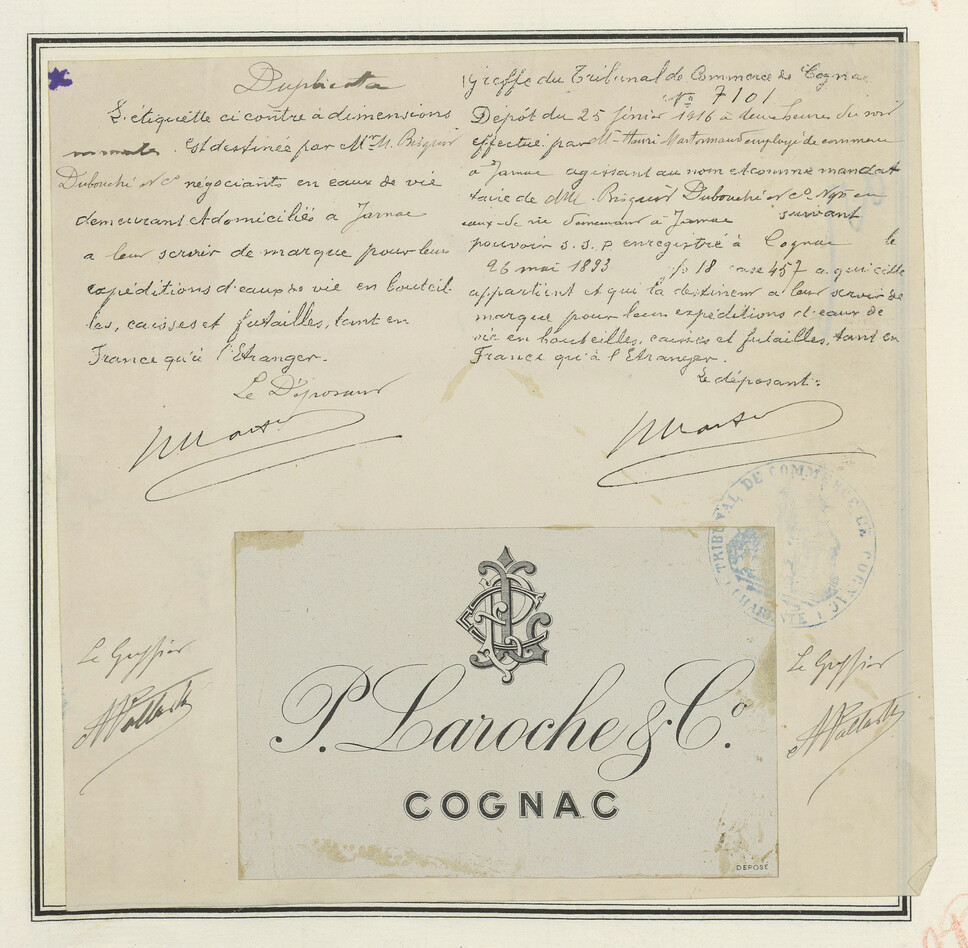 Duplicata
L'étiquette ci contre à dimensions
est destinée par M.rs M. Bisquit
Dubouché et Cº négociants en eaux de vie
demeurant et domiciliés à Jarnac
a leur servir de marque pour leurs
expéditions d'eaux de vie en bouteil
les, caisses et futailles, tant en
France qu'à l'Etranger.
Le Déposant
Greffe du Tribunal de Commerce de Cognac
Nº 7101
Dépôt du 25 février 1916 à deux heures du soir
effectué par M. Henri employé de commerce
à Jarnac agissant au nom et comme mandat
taire de MM. Bisquit Dubouché et Cº Ngts en
eaux-de-vie demeurant à Jarnac suivant
pouvoir S. S. P enregistré à Cognac le
26 mai 1893 fº 18 case 457 a qui elle
appartient et qui la destinent a leur servir de
marque pour leurs expéditions d'eaux de
vie en bouteilles, caisses et futailles, tant en
France qu'à l'Etranger.
Le déposant:
TRIBUNAL DE COMMERCE DE COGNAC
CHARENTE
Le Greffier
Le Greffier
P. Laroche & Cº.
COGNAC
DÉPOSÉ